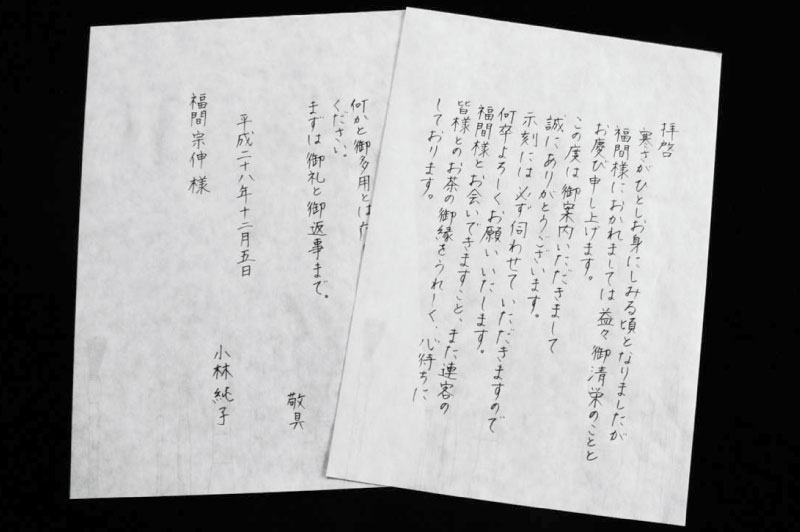 拝啓
寒さがひとしお身にしみる頃となりましたが
福間様におかれましては益々御清栄のことと
お慶び申し上げます。
この度は御案内いただきまして
誠にありがとうございます。
示刻には必ず伺わせていただきますので
何卒よろしくお願いいたします。
福間様とお会いできますこと、また連客の
皆様とのお茶の御縁をうれしく、心待ちに
しております。
何かと御多用とは
ください。
まずは御礼と御返事まで。
敬具
平成二十八年十二月五日
小林純子
福間宗伸様